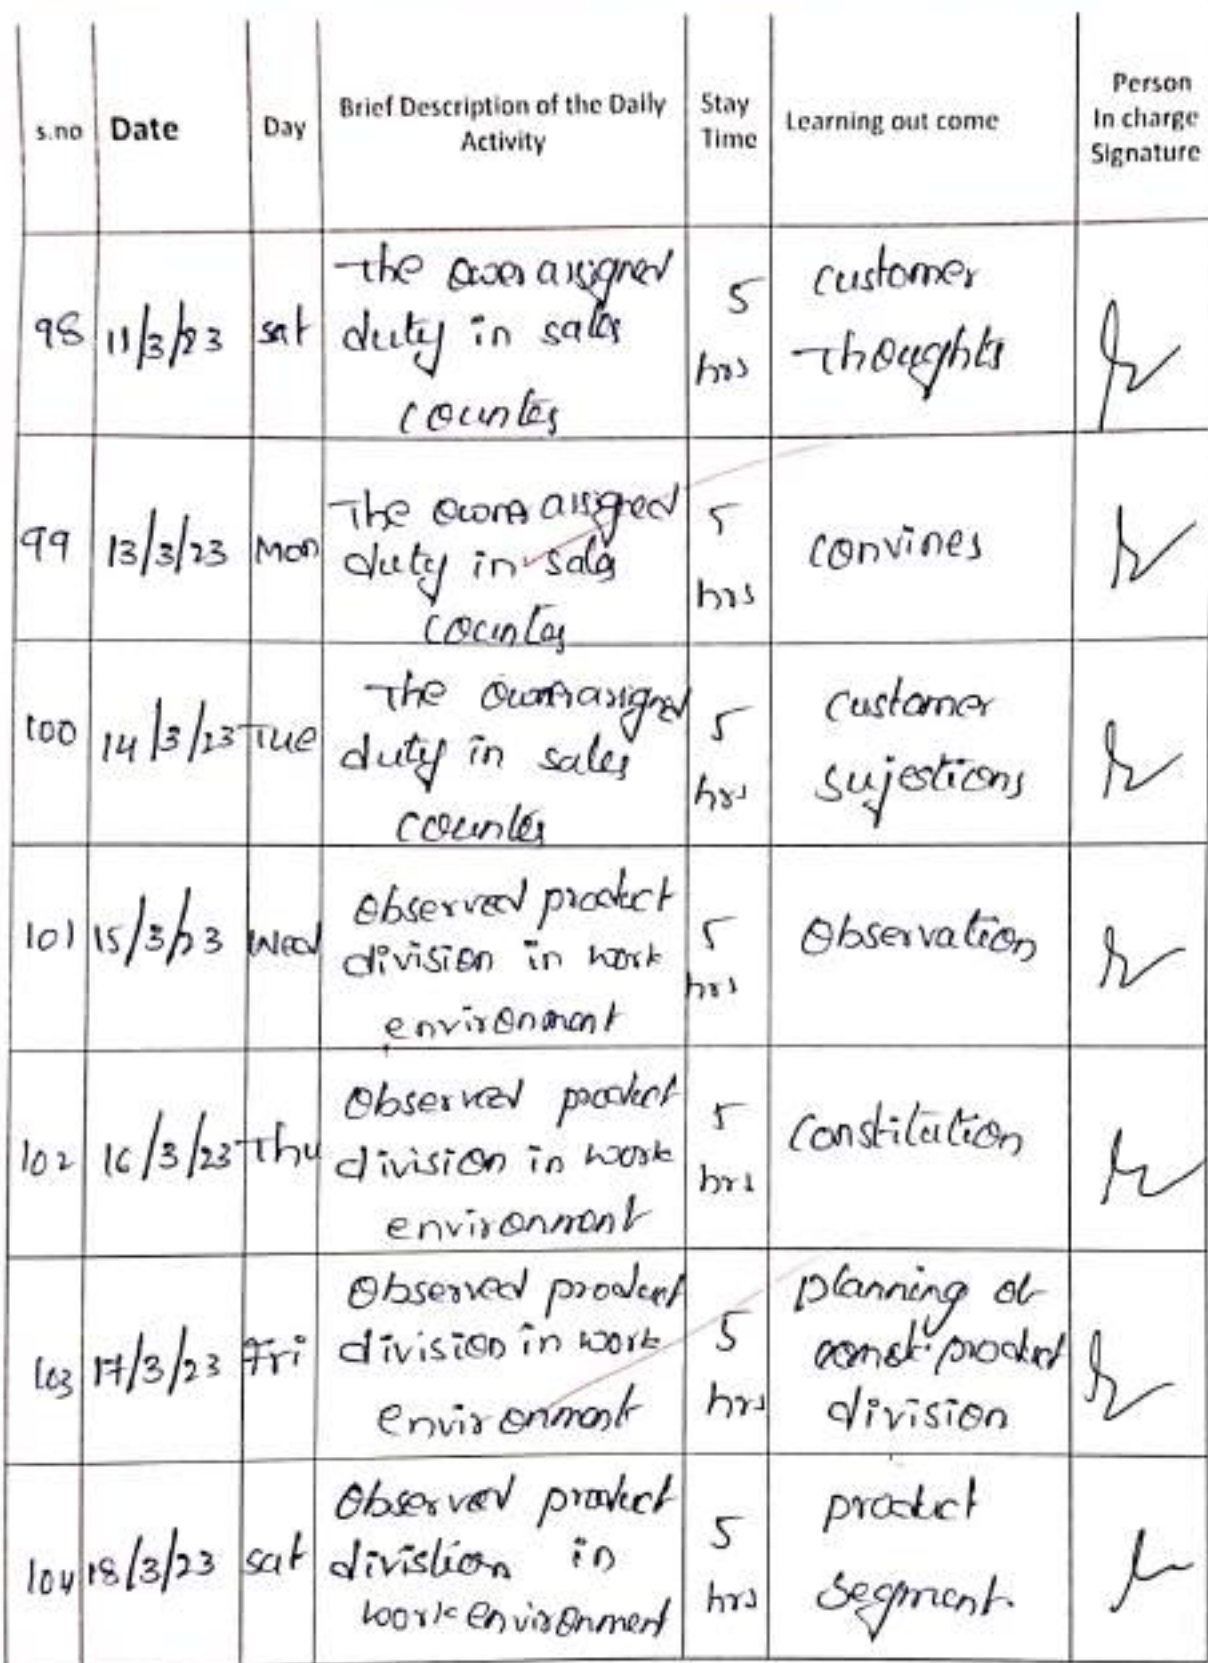 s.no Date Day Brief Description of the Daily Activity Stay Time Learning out come Person In charge Signature
98 11/3/23 sat The owner assigned duty in sales counter 5 hrs customer Thoughts
99 13/3/23 Mon The owner assigned duty in sales counter 5 hrs convines
100 14/3/23 Tue The owner assigned duty in sales counter 5 hrs customer sujestions
101 15/3/23 Wed Observed product division in work environment 5 hrs Observation
102 16/3/23 Thu Observed product division in work environment 5 hrs Constitution
103 17/3/23 Fri Observed product division in work environment 5 hrs planning of product division
104 18/3/23 sat Observed product divistion in work environment 5 hrs product segment.